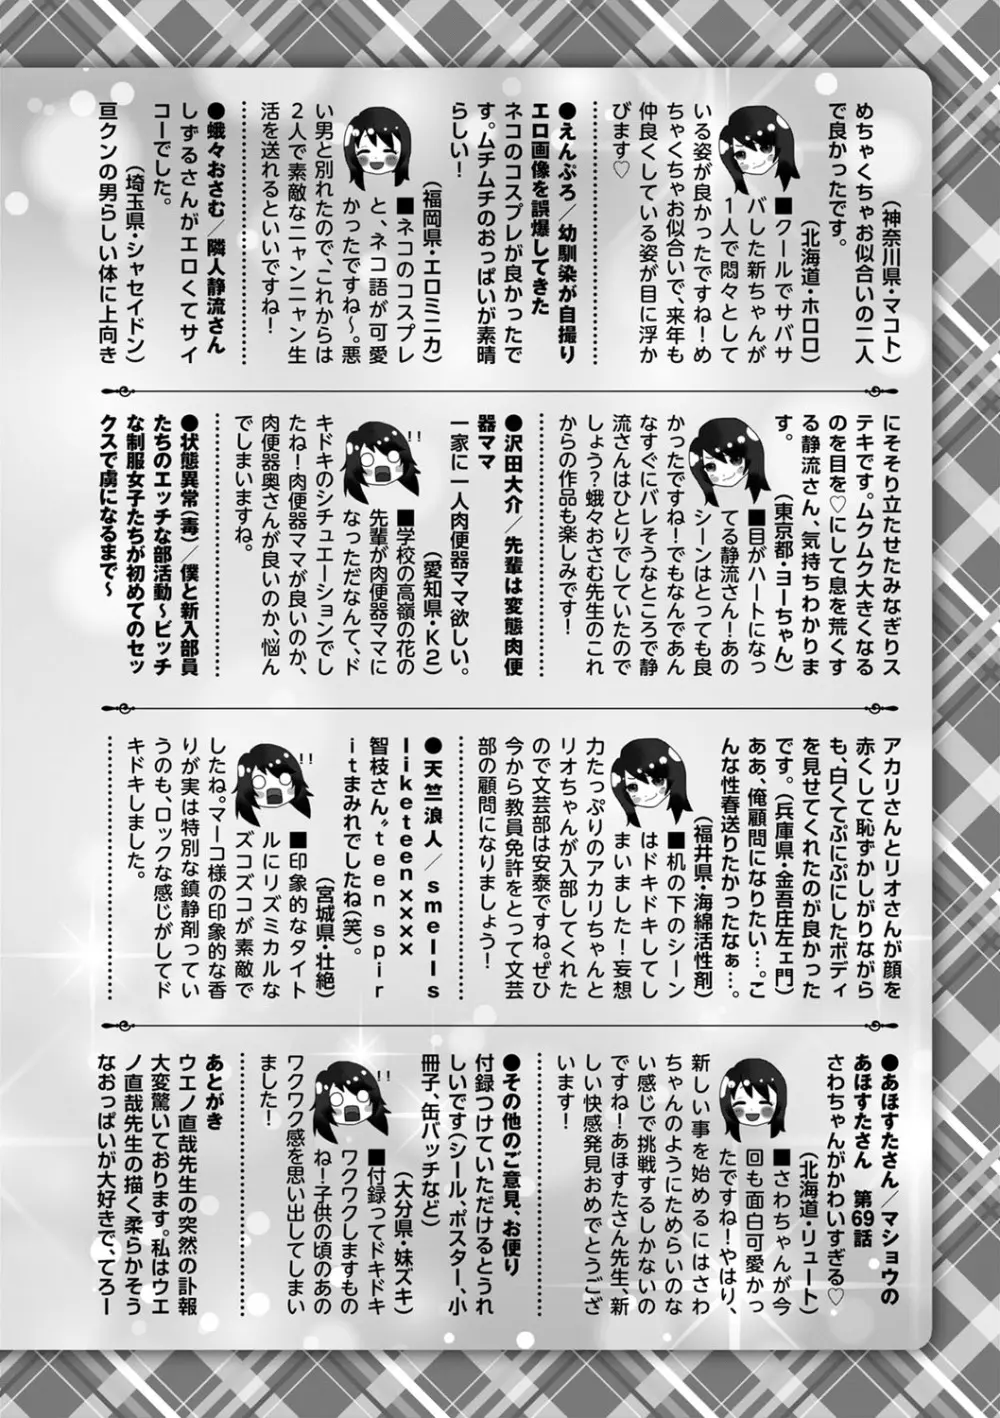 めちゃくちゃお似合いの二人
で良かったです。
（神奈川県・マコト）
（北海道・ホロロ）
■クールでサバサ
バした新ちゃんが
1人で悶々として
いる姿が良かったですね！め
ちゃくちゃお似合いで、来年も
仲良くしている姿が目に浮か
びます♡
●えんぶろ／幼馴染が自撮り
エロ画像を誤爆してきた
ネコのコスプレが良かったで
す。ムチムチのおっぱいが素晴
らしい！
（福岡県・エロミニカ）
■ネコのコスプレ
と、ネコ語が可愛
かったですね〜。悪
い男と別れたので、これからは
2人で素敵なニャンニャン生
活を送れるといいですね！
●蛾々おさむ／隣人静流さん
しずるさんがエロくてサイ
コーでした。
（埼玉県・シャセイドン）
亘クンの男らしい体に上向き
にそそり立たせたみなぎりス
テキです。ムクムク大きくなる
のを目を♡にして息を荒くす
る静流さん、気持ちわかりま
す。
（東京都・ヨーちゃん）
■目がハートになっ
てる静流さん！あの
シーンはとっても良
かったですね！でもなんであん
なすぐにバレそうなところで静
流さんはひとりでしていたので
しょう？蛾々おさむ先生のこれ
からの作品も楽しみです！
●沢田大介／先輩は変態肉便
器ママ
一家に一人肉便器ママ欲しい。
（愛知県・K2）
■学校の高嶺の花の
先輩が肉便器ママに
なっただなんて、ド
キドキのシチュエーションでし
たね！肉便器ママが良いのか、
肉便器奥さんが良いのか、悩ん
でしまいますね。
●状態異常（毒）／僕と新入部員
たちのエッチな部活動〜ビッチ
な制服女子たちが初めてのセッ
クスで虜になるまで〜
アカリさんとリオさんが顔を
赤くして恥ずかしがりながら
も、白くてぷにぷにしたボディ
を見せてくれたのが良かった
です。（兵庫県・金吾庄左ェ門）
ああ、俺顧問になりたい…。こ
んな性春送りたかったなぁ…。
（福井県・海綿活性剤）
■机の下のシーン
はドキドキしてし
まいました！妄想
力たっぷりのアカリちゃんと
リオちゃんが入部してくれた
ので文芸部は安泰ですね。ぜひ
今から教員免許をとって文芸
部の顧問になりましょう！
●天竺浪人／smells
liketeen××××
智枝さん〝teen spir
itまみれでしたね（笑）。
（宮城県・壮絶）
■印象的なタイト
ルにリズミカルな
ズコズコが素敵で
したね。マーコ様の印象的な香
りが実は特別な鎮静剤ってい
うのも、ロックな感じがしてド
キドキしました。
●あほすたさん／マショウの
あほすたさん　第69話
さわちゃんがかわいすぎる♡
（北海道・リュート）
■さわちゃんが今
回も面白可愛かっ
たですね！やはり、
新しい事を始めるにはさわ
ちゃんのようにためらいのな
い感じで挑戦するしかないの
ですね！あほすたさん先生、新
しい快感発見おめでとうござ
います！
●その他のご意見、お便り
付録つけていただけるとうれ
しいです（シール、ポスター、小
冊子、缶バッチなど）
（大分県・妹ズキ）
■付録ってドキドキ
ワクワクしますもの
ね！子供の頃のあの
ワクワク感を思い出してしまい
ました！
あとがき
ウエノ直哉先生の突然の訃報
大変驚いております。私はウエ
ノ直哉先生の描く柔らかそう
なおっぱいが大好きで、てろー